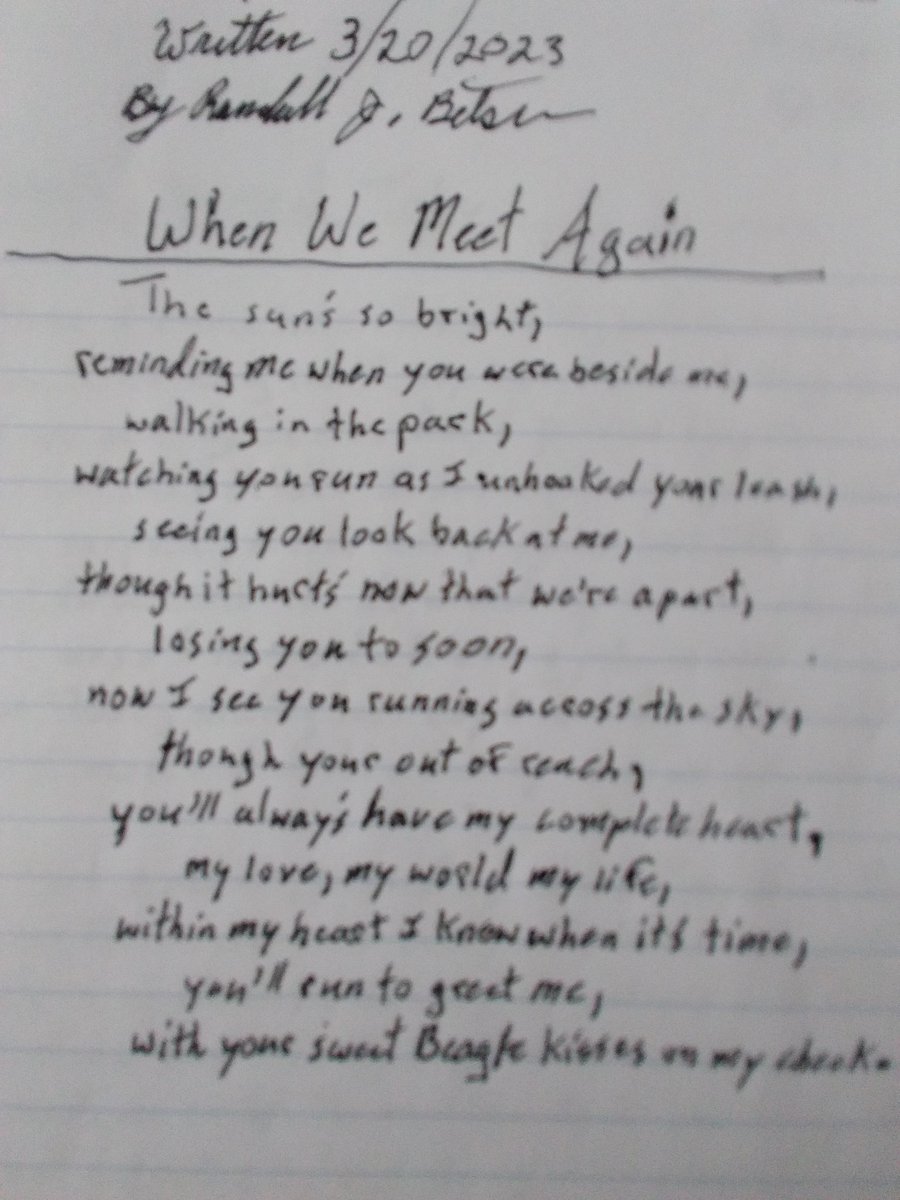 Written 3/20/2023
By Randall J.
When We Meet Again
The sun's so bright,
reminding me when you were beside me,
walking in the park,
watching you run as I unhooked your leash,
seeing you look back at me,
though it hurt's now that we're apart,
losing you to soon,
now I see you running across the sky,
though your out of reach,
you'll always have my complete heart,
my love, my world my life,
within my heart I know when it's time,
you'll run to greet me,
with your sweet Beagle kisses on my cheek.